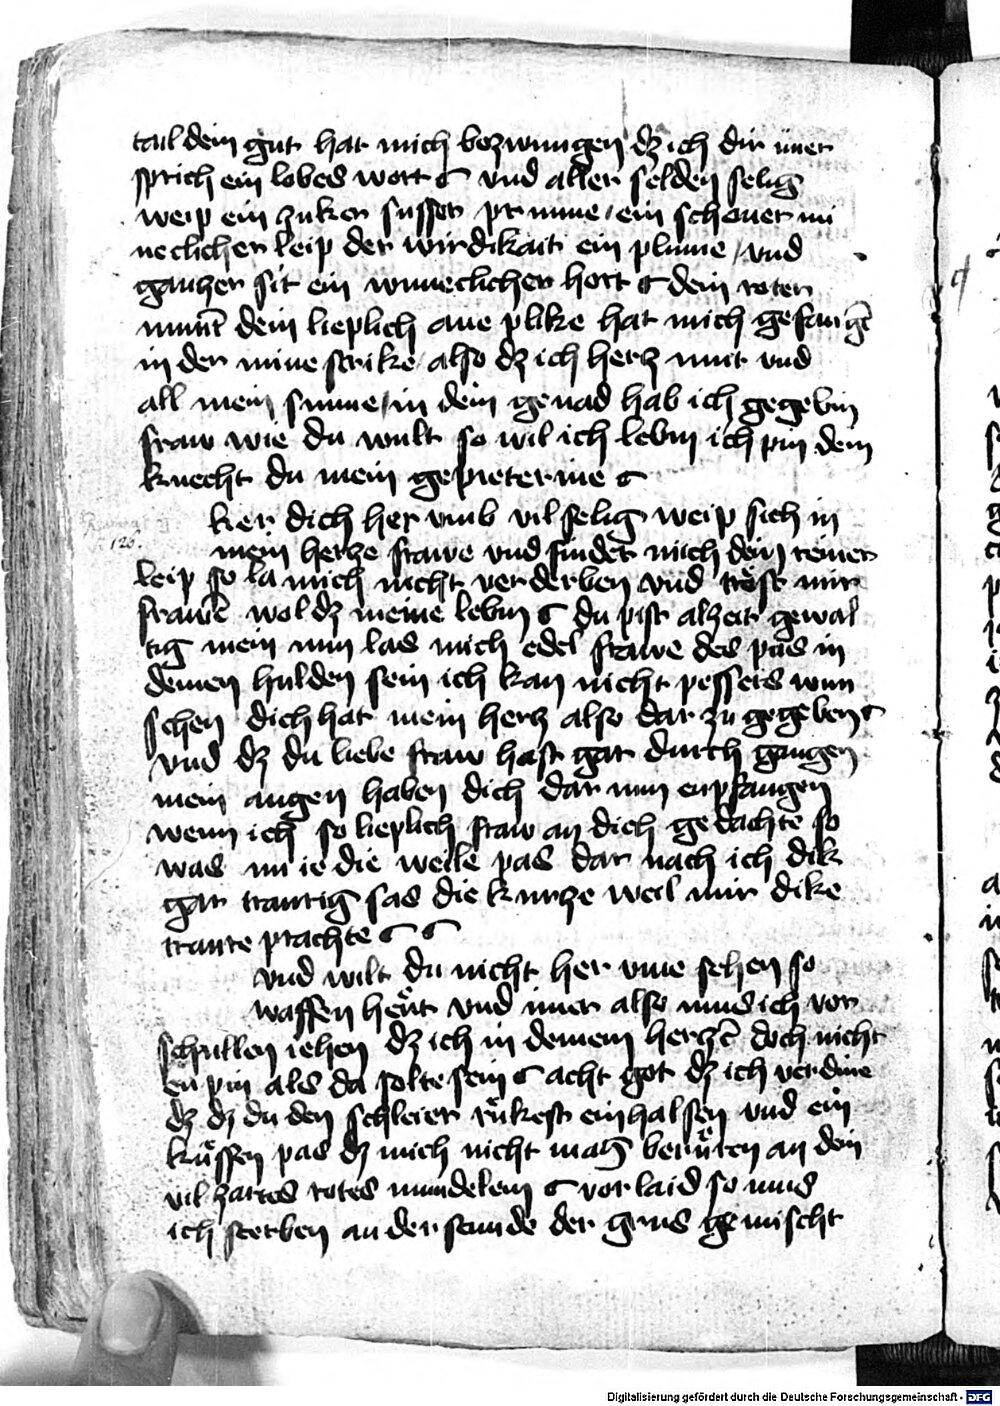 tail dein gut hat mich bezwungen dz ich dir imer
sprich ein lobes wort und aller selden selig
weip ein zuker susser prunne / ein schoner mi
neclicher leip der wirdikait ein plume / und
ganczer sit ein wuneclicher hort dein roter
munt dein lieplich aue plike hat mich gefangē
in der mine strike / also dz ich hercz mut vnd
all mein sinne / in dein genad hab ich gegebin
fraw wie du wult so wil ich lebin ich pin dein
knecht du mein gepieterine
ker dich her umb vil selig weip sich in
mein hercze frawe vnd findet mich dein reiner
leip so la mich nicht verderben vnd tröst mir
frawē wol dz meine lebin du pist alzeit gewal
tig mein nun las mich edel frawe des pas in
deinen hulden sein ich kan nicht pessers wun
schen dich hat mein hercz also dar zu gegeben
vnd dz du liebe fraw hast gar durch gangen
mein augen haben dich dar inn enpfangen
wenn ich so lieplich fraw an dich gedachte so
was mi ie die weile pas dar nach ich dik
gar traurig sas die kurcze weil mir dike
traure prachte
vnd wilt du nicht her vme sehen so
waffen heut vnd imer also mus ich vor
schullen iehen dz ich in deinem herczē doch nicht
en pin als da solte sein acht got dz ich verdine
dz dz du den schleier rukest ein halsen vnd ein
küssen pas dz mich nicht mag berüren an dein
vil zartes rotes mundelein vor laid so mus
ich sterben an der stunde der grus gemischt
126.
Digitalisierung gefördert durch die Deutsche Forschungsgemeinschaft - DFG